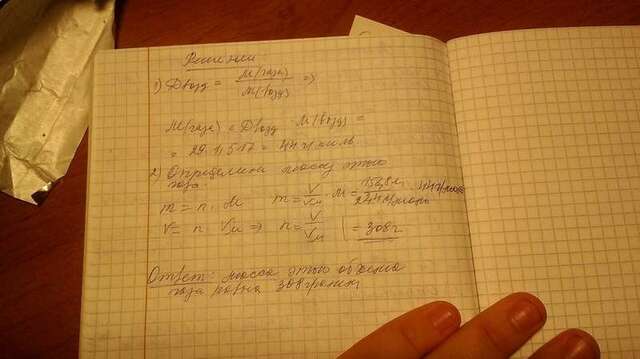 Решение
1) Dвозд = M(газа) / M(возд) ⇒
M(газа) = Dвозд · M(возд) =
= 29 · 1,517 = 44 г/моль
2) Определим массу этого
газа
m = n · M m = V/Vм · M = 156,8 л / 22,4 л/моль · 44 г/моль
V = n · Vм ⇒ n = V/Vм = 308 г
Ответ: масса этого объема
газа равна 308 грамм